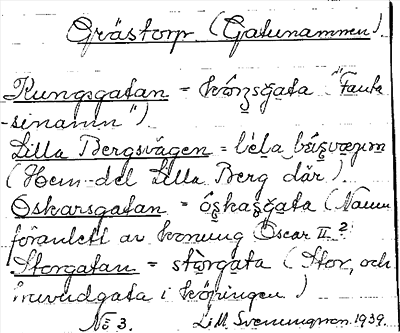 Grästorp (Gatunamnen).
Kungsgatan = kóŋsgata ("Fank
-sinamn")
Lilla Bergsvägen = lela
(Hem-del Lilla Berg där)
Oskarsgatan = óskasgata (Namn
föranlett av konung Oscar II ?
Storgatan = stòrgata (Stor, och
huvudgata i köpingen)
No 3. L. M. Svenungsson 1939.